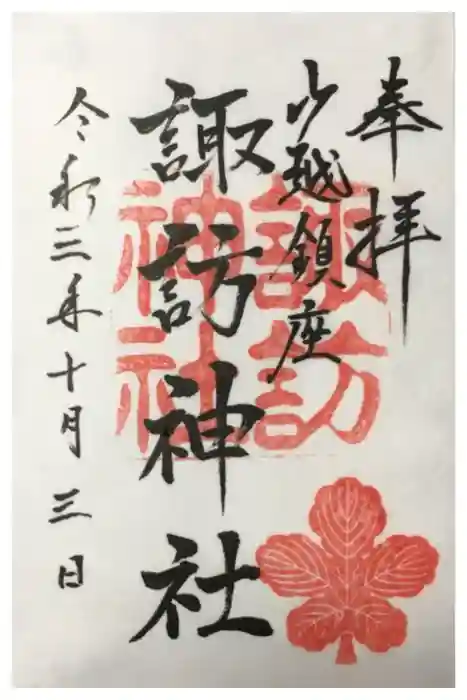 奉拝
山越鎮座
諏訪神社
令和三年十月三日
諏訪
神社